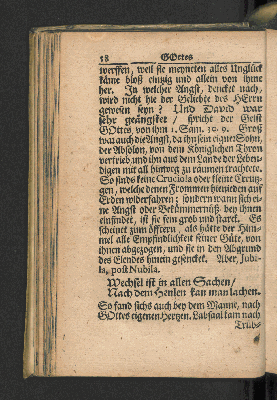 58 GOttes
werffen, weil sie meyneten alles Unglück
käme bloß einzig und allein von ihme
her. In welcher Angst, dencket nach,
wird nicht hie der Geliebte des HErrn
gewesen seyn? Und David war
sehr geängstet / spricht der Geist
GOttes von ihm 1. Sam. 30. 9. Groß
war auch die Angst, da ihn sein eigner Sohn,
der Absolon, von dem Königlichen Thron
vertrieb und ihn aus dem Lande der Leben-
digen mit all hinweg zu räumen trachtete.
So sinds keine Cruciola oder kleine Creutz-
gen, welche denen Frommen hienieden auf
Erden widerfahren; sondern wann sich ei-
ne Angst oder Bekümmernüß bey ihnen
einfindet, ist sie fein grob und starck. Es
scheinet zum öfftern, als hätte der Him-
mel alle Empfindlichkeit seiner Güte, von
ihnen abgezogen, und sie in den Abgrund
des Elendes hinein gesencket. Aber, Jubi-
la, post Nubila.
Wechsel ist in allen Sachen /
Nach dem Heulen kan man lachen.
So fand sichs auch bey dem Manne, nach
GOttes eigenen Hertzen. Labsaal kam nach
Trüb-